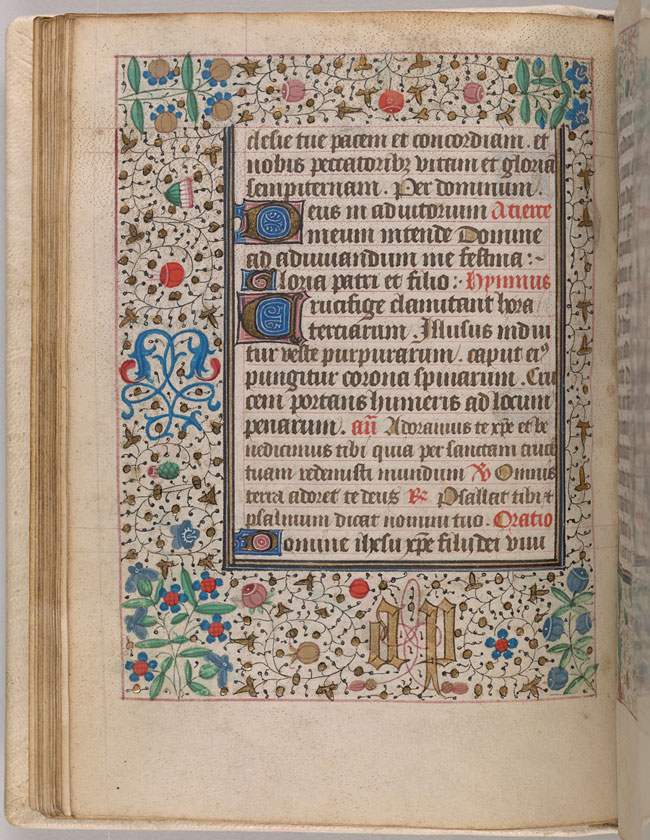 clesie tue pacem et concordiam. et
nobis peccatoribȝ vitam et gloria
sempiternam. Per dominum.
Deus in adiutorium A tierce
meum intende Domine
ad adiuuandum me festina :~
Gloria patri et filio : Hympnus
Crucifige clamitant hora
terciarum. Illusus indui
tur veste purpurarum. caput eiꝰ
pungitur corona spinarum. Cru
cem portans humeris ad locum
penarum. añ Adoramus te xp̄e et be
nedicimus tibi quia per sanctam cruce
tuam redemisti mundum ℣ Omnis
terra adoret te deus ℟ Psallat tibi ⁊
psalmum dicat nomini tuo. Oratio
Domine ihesu xp̄e fili dei viui
a p